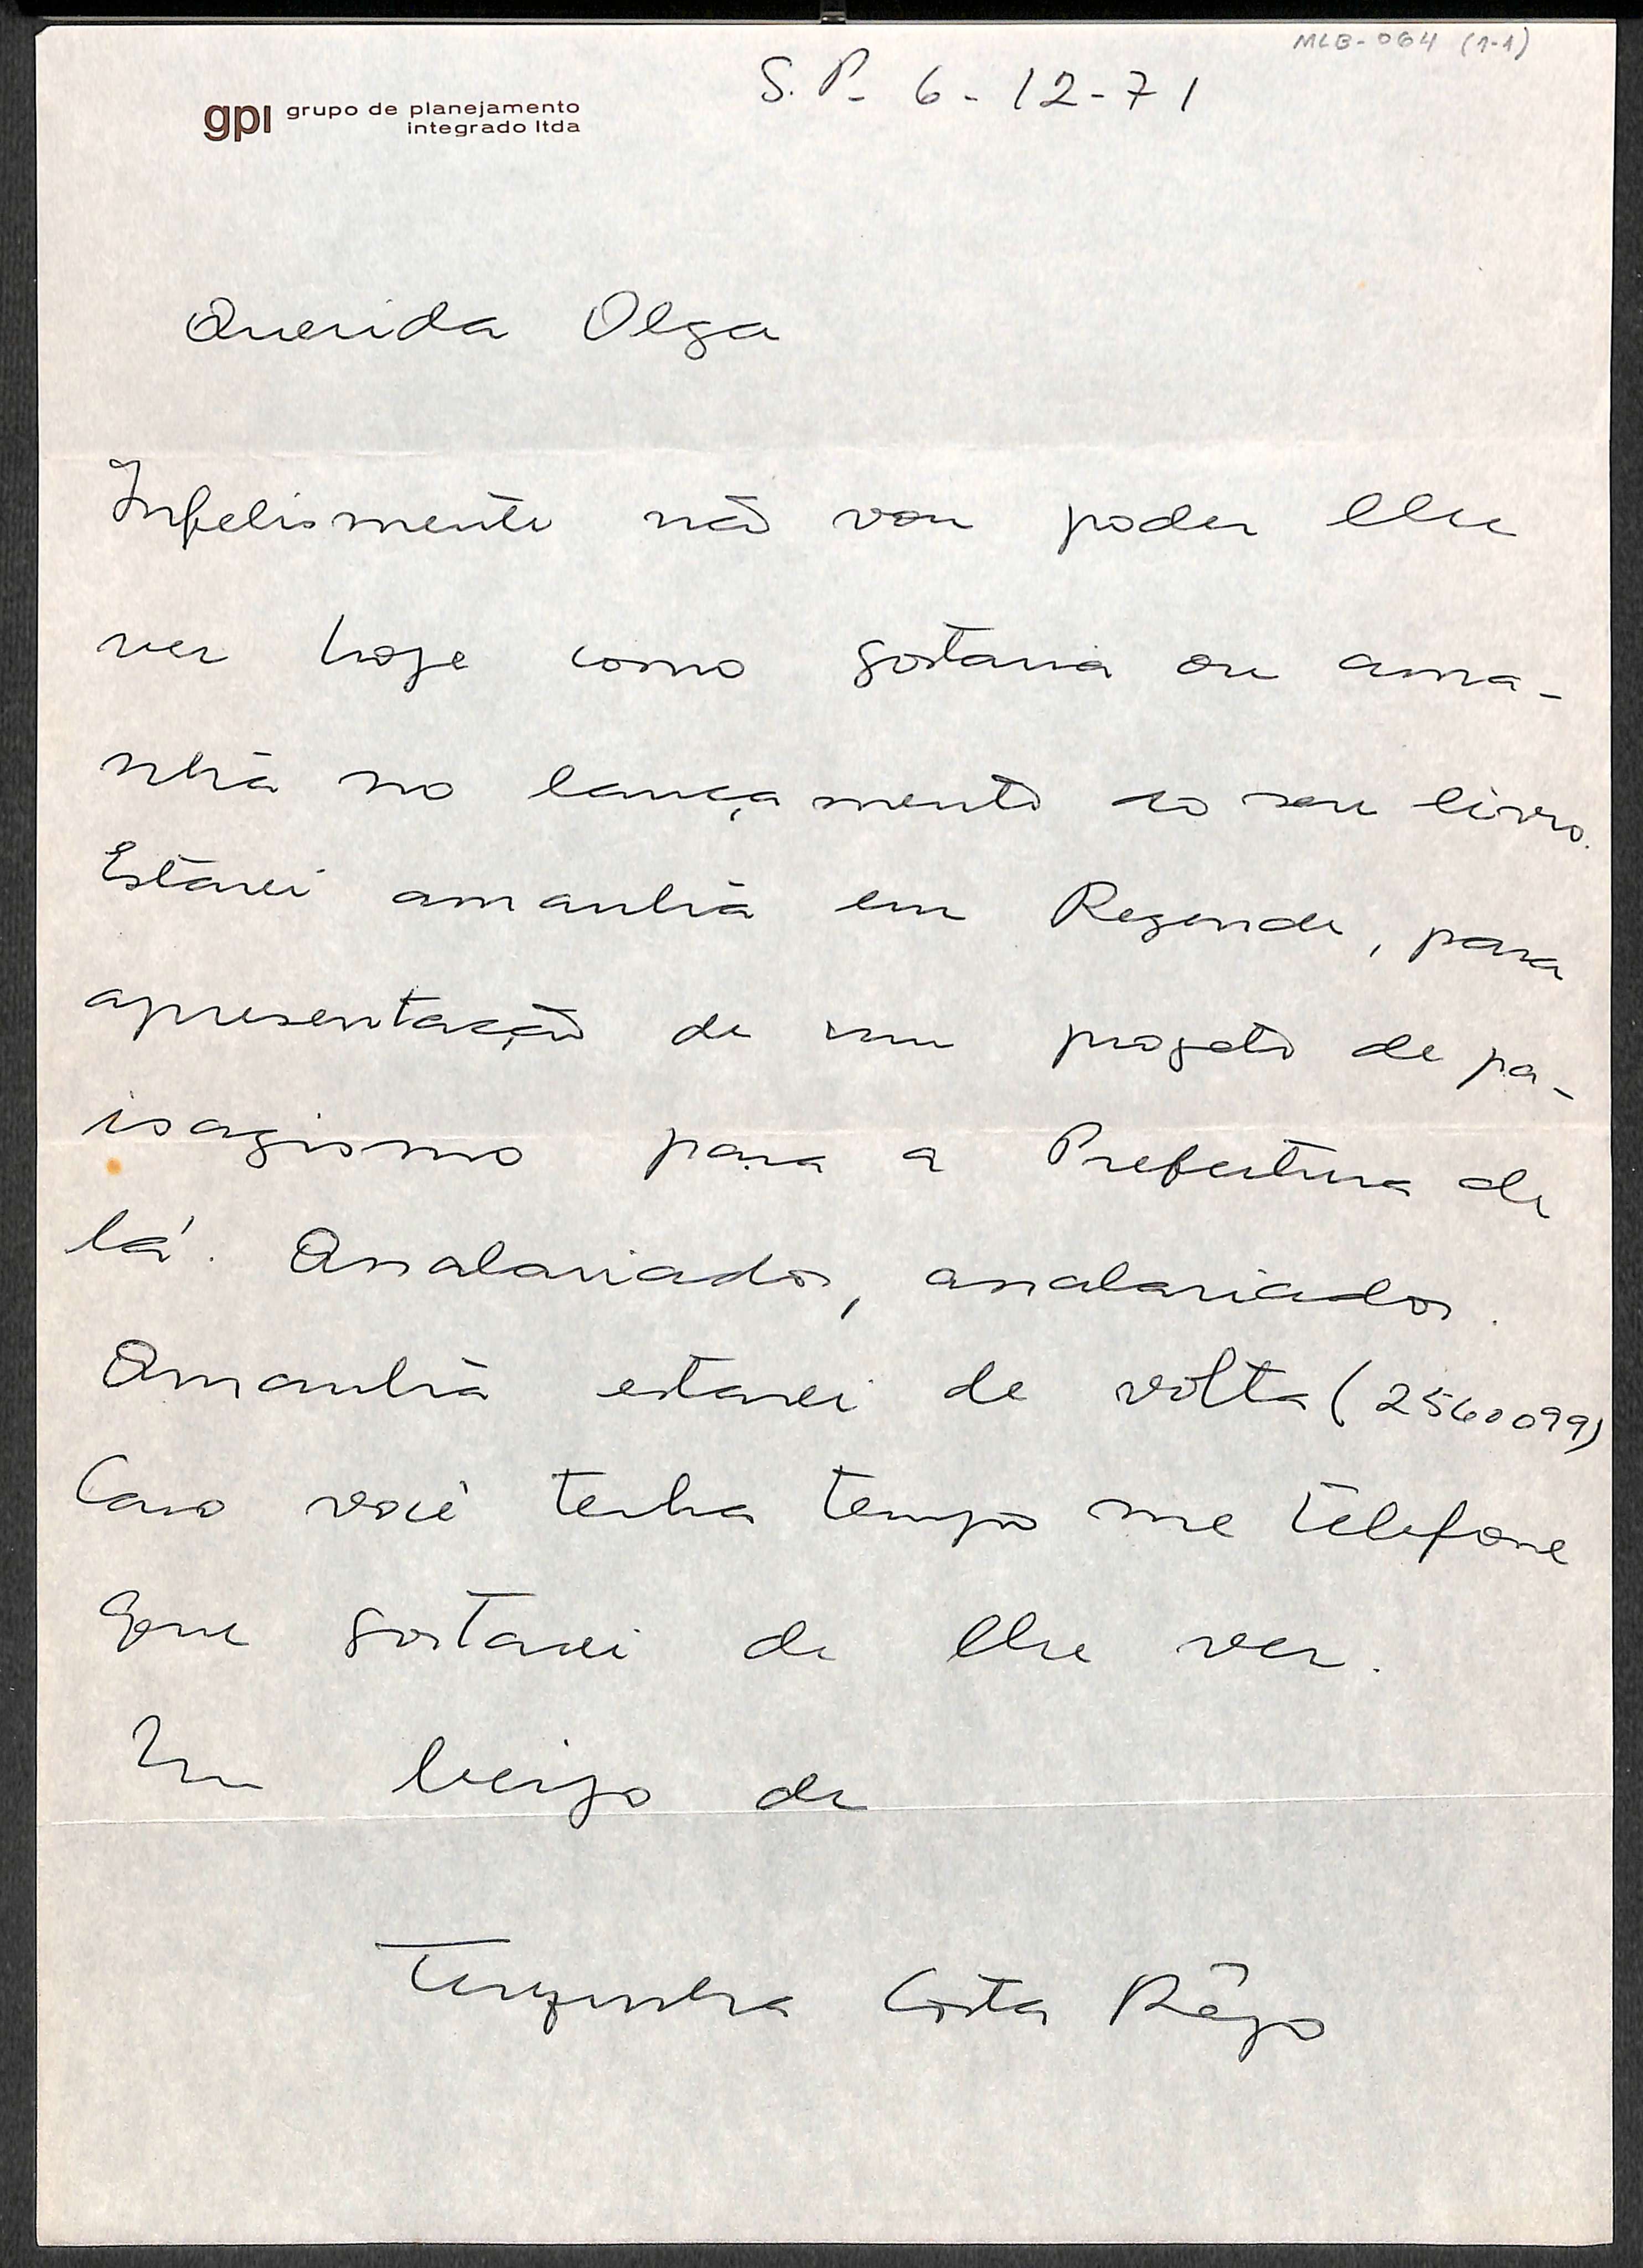 MLB-064 (1-1)
S.P. 6-12-71
gpi grupo de planejamento
integrado ltda
Querida Olga
Infelismente não vou poder lhe
ver hoje como gostaria ou ama-
nhã no lançamento do seu livro.
Estarei amanhã em Regende, para
apresentação de um projeto de pa-
isagismo para a Prefeitura de
lá. Assalariados, assalariados.
Amanhã estarei de volta (2560099)
Caso você tenha tempo me telefone
que gostarei de lhe ver.
Um beijo de
Terezinha Costa Rêgo